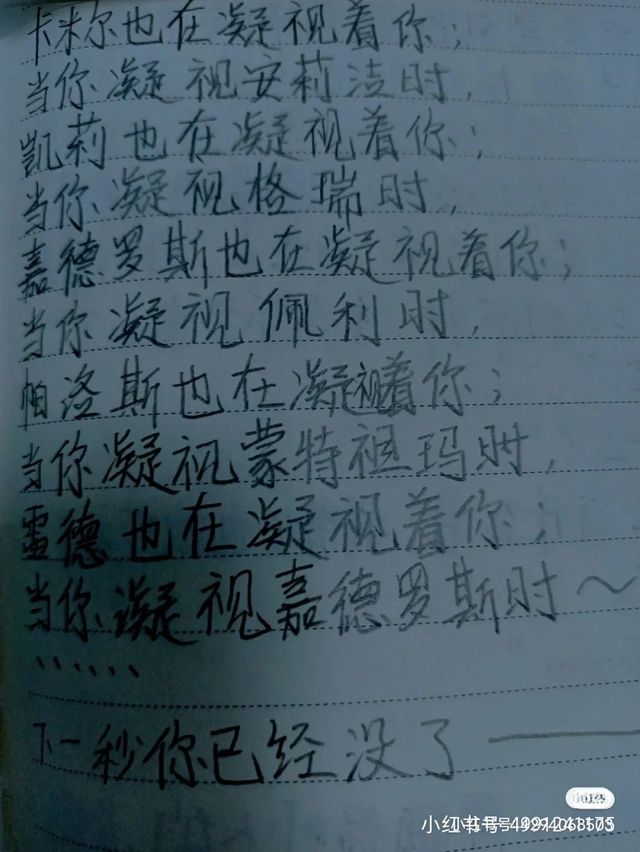 卡米尔也在凝视着你；
当你凝视安莉洁时，
凯莉也在凝视着你；
当你凝视格瑞时，
嘉德罗斯也在凝视着你；
当你凝视佩利时，
帕洛斯也在凝视着你；
当你凝视蒙特祖玛时，
雷德也在凝视着你；
当你凝视嘉德罗斯时～
、、、、、、
下一秒你已经没了——
小红书
小红书号